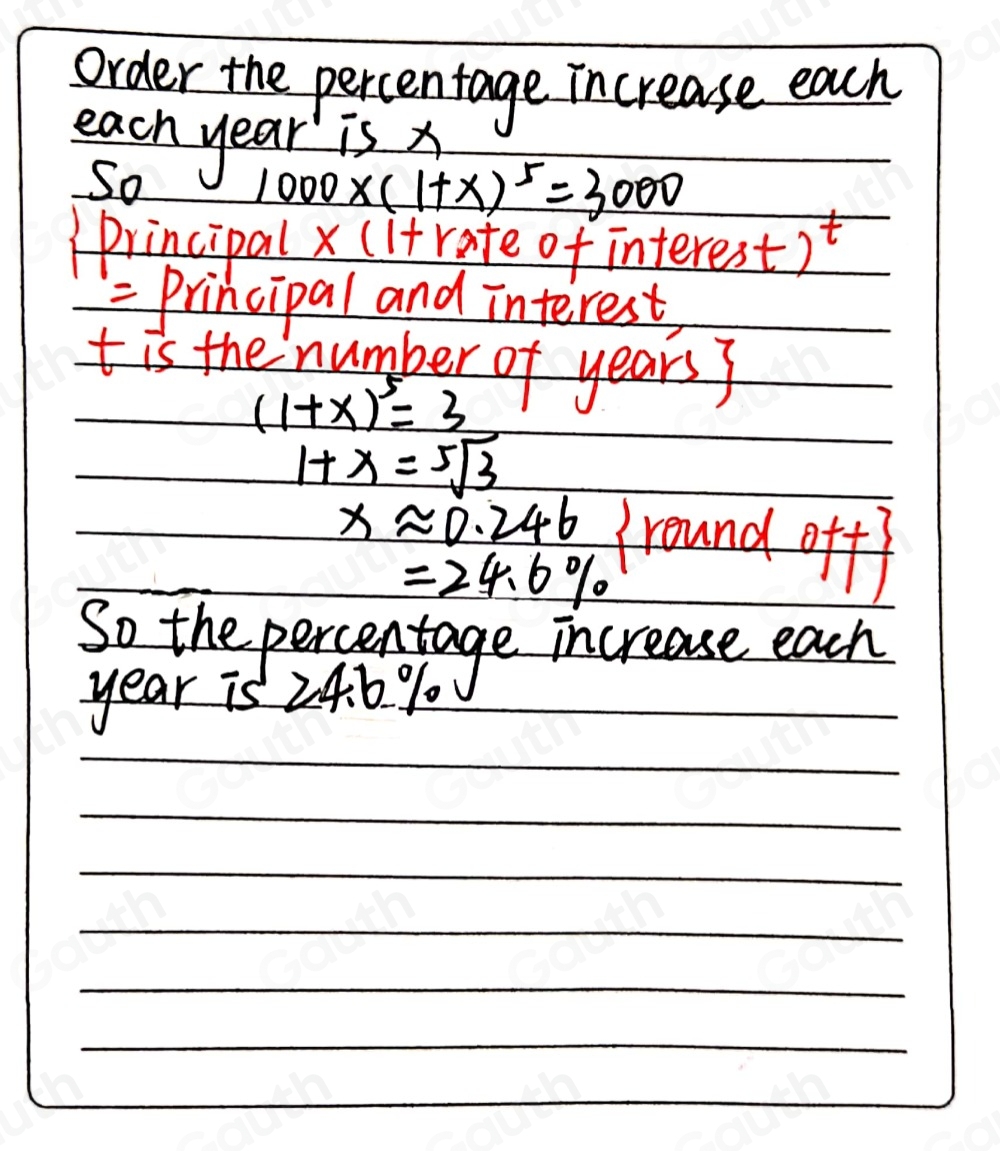 Order the percentage increase each
each year is x
So 1000×(1+x)⁵=3000
{Principal × (1+rate of interest)ᵗ
= Principal and interest,
t is the number of years}
(1+x)⁵= 3
1+x = ⁵√3
x ≈0.246 {round off}
=24.6%
So the percentage increase each
year is 24.6%